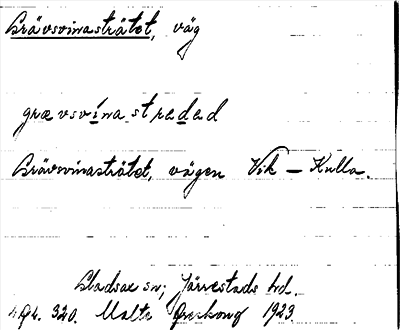 Grävsvinasträtet, väg
grævsvína streded
Grävsvinasträtet, vägen Vik — Kulla.
Gladsax sn; Järrestads hd.
320. Malte 1923